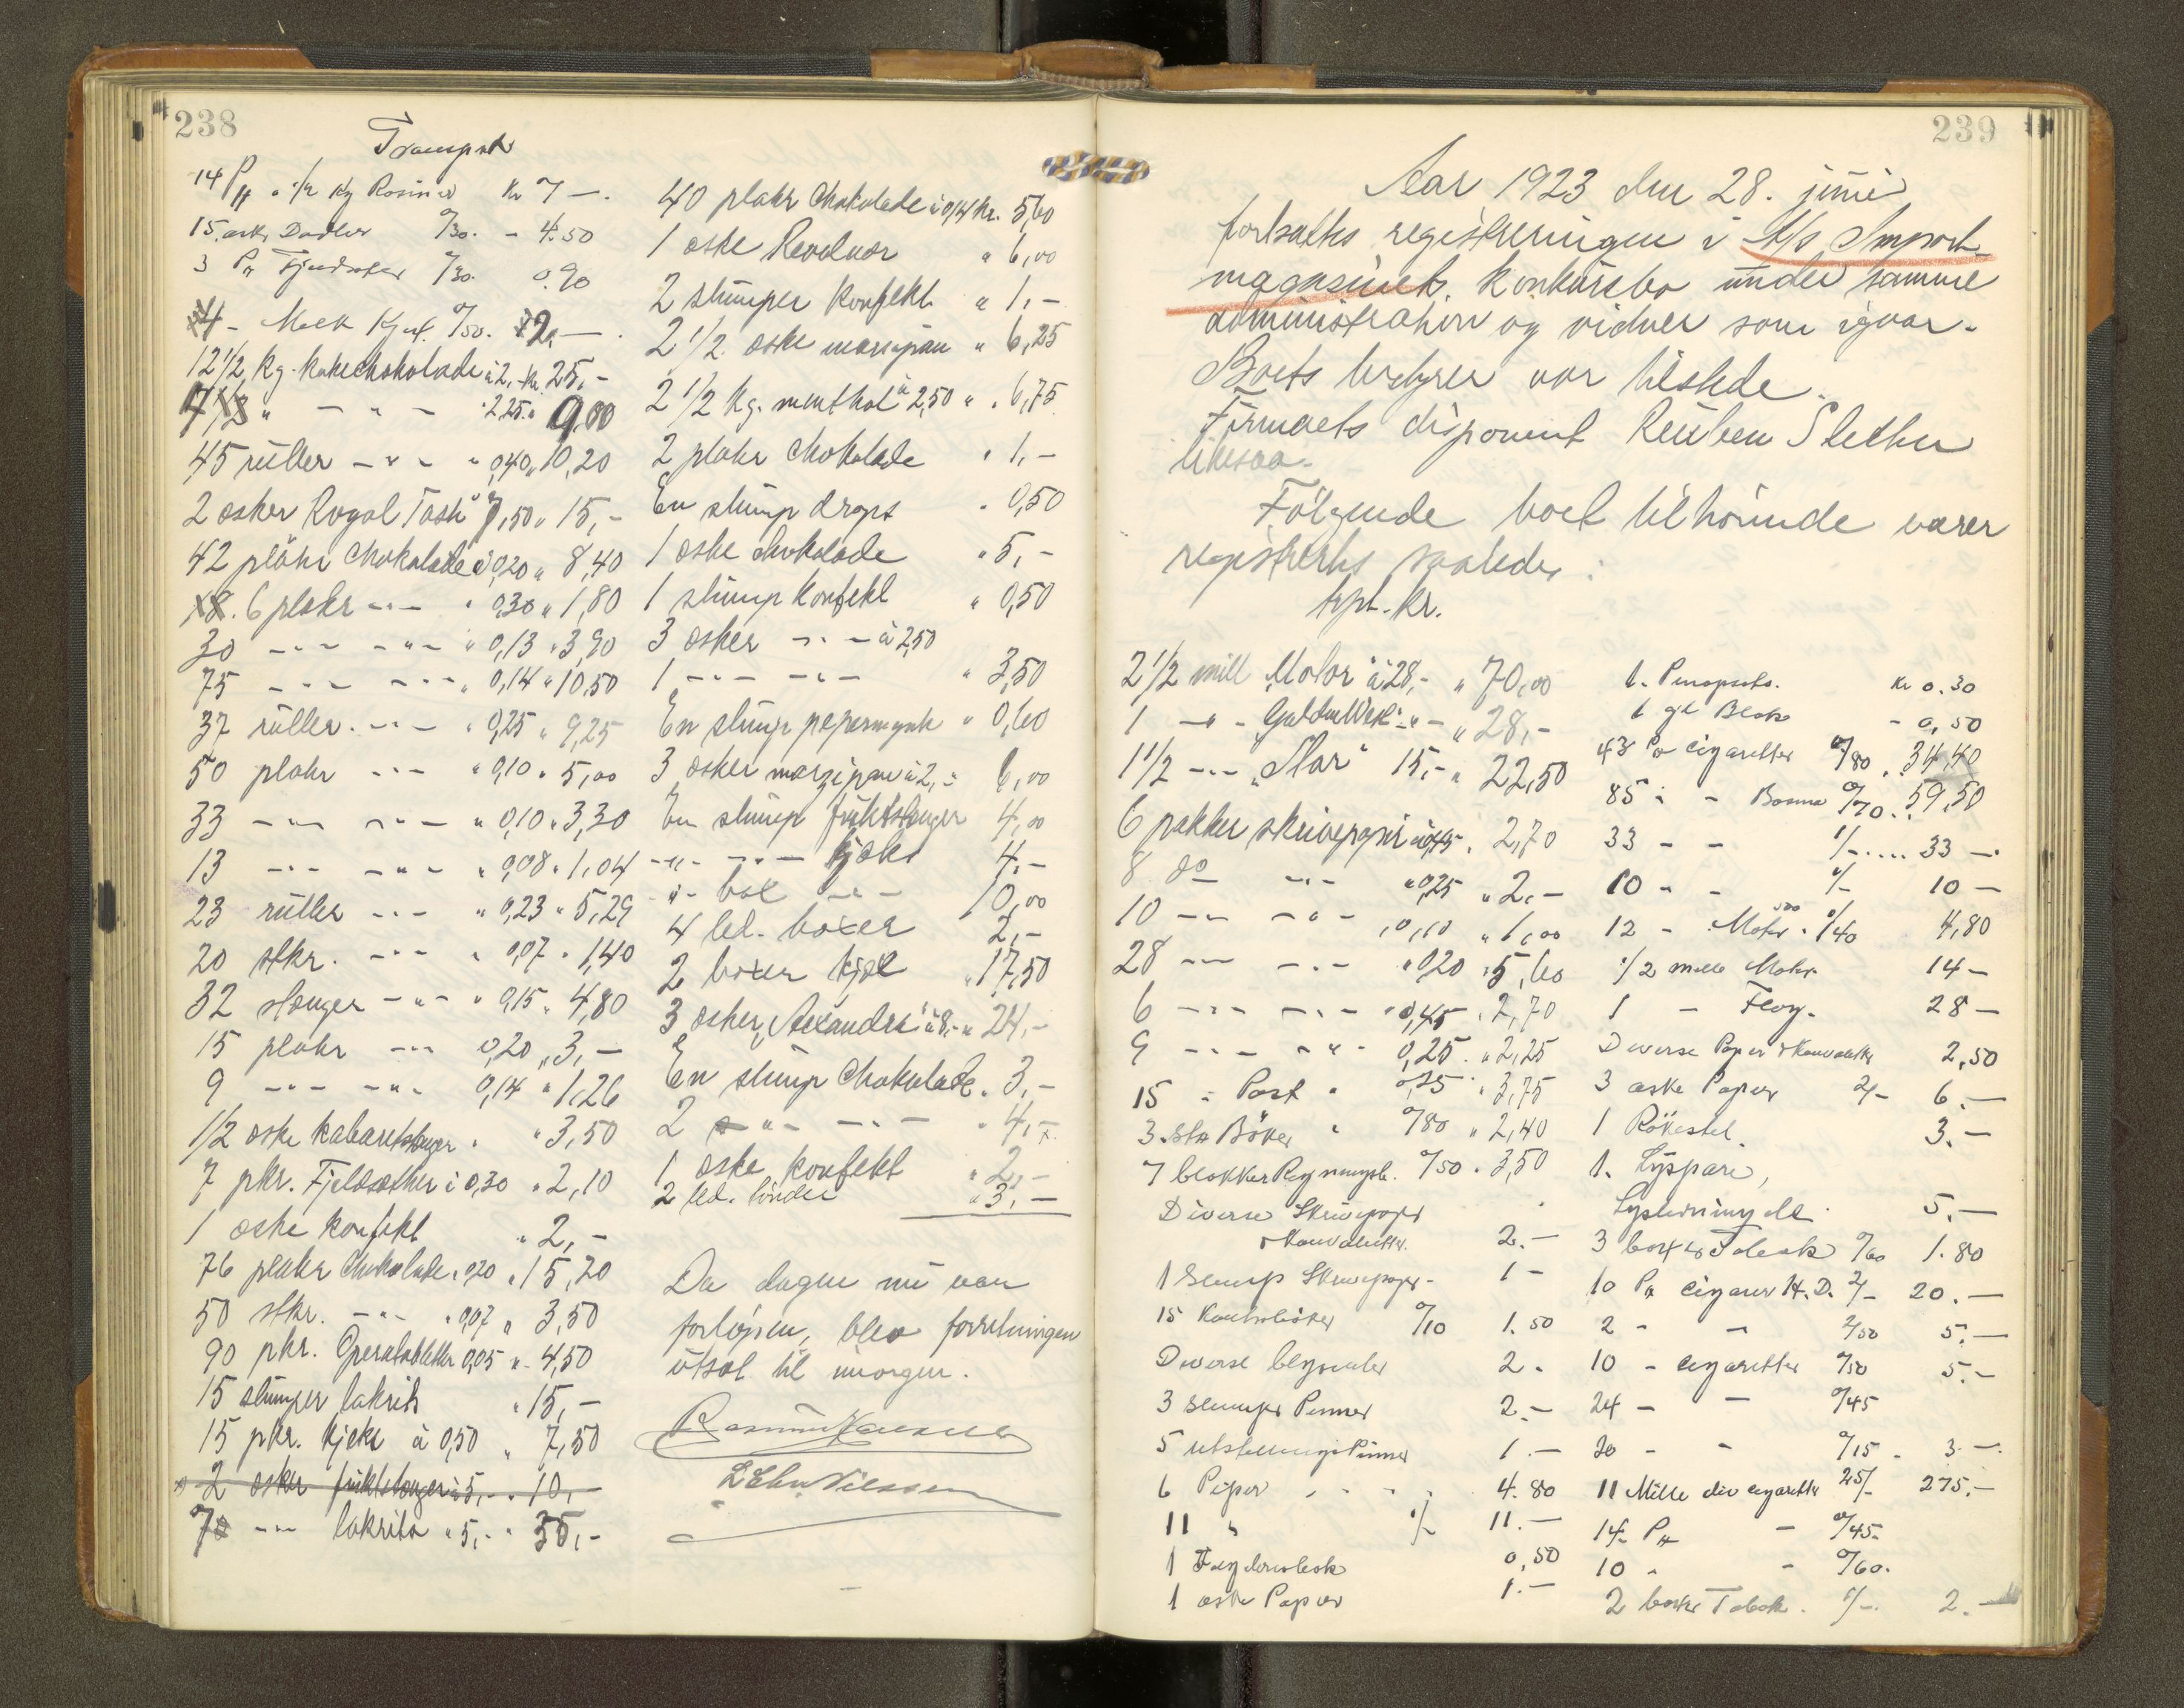 238
Transport
14 Pk " 1/2 kg Rosiner Kr 7 —.
15 eske Dadler 0/30. - 4.50
3 Pk 0/30. 0.90
4 - Melk Kjex. 0/50. 2,—.
12 1/2 kg. kakechokolade à 2,- kr. 25,-
4 " — " — " 2.25 " 9,00
45 rüller — " — " 0,40 " 10,20
2 esker Royal Task à 7,50 " 15,-
42 plater Chokolade à 0,20 " 8,40
6 plater -"- " 0,30 " 1,80
30 -"- -"- " 0,13 " 3,90
75 -"- -"- " 0,14 " 10,50
37 rüller. -"- " 0,25 " 9,25
50 plater -"- " 0,10 " 5,00
33 -"- -"- " 0,10 " 3,30
13 -"- -"- " 0,08 " 1,04
23 rüller -"- " 0,23 " 5,29
20 stkr. -"- " 0,07 " 1,40
32 stenger -"- " 0,15 " 4,80
15 plater -"- 0,20 " 3,-
9 -"- -"- 0,14 " 1,26
1/2 eske kabaretstenger " " 3,50
7 pkr. Fjeldsæther à 0,30 " 2,10
1 eske konfekt " 2,-
76 plater Chokolade " 0,20 " 15,20
50 stkr. -"- " 0,07 " 3,50
90 pkr. Operatabletter 0,05 " 4,50
15 slumper lakrits " 15,-
15 pkr. kjeks à 0,50 " 7,50
2 esker frúktstenger à 5,- " 10,-
7 -"- lakrits " 5,- " 35,-
40 plater Chokolade à 0,14 kr. 5,60
1 eske Revolver " 6,00
2 slumper konfekt " 1,-
2 1/2 eske marsipan " 6,25
2 1/2 kg. menthol à 2,50 " " 6,75
2 plater Chokolade " 1,-
En slump drops " 0,50
1 eske chokolade " 5,-
1 slump konfekt " 0,50
3 esker -"- à 2,50
1 -"- -"- " 3,50
En slump pepermynte " 0,60
3 esker marzipan à 2,- " 6,00
En slump frúktstenger 4,00
-"- -"- kjeks 4,-
-"- box -"- 10,00
4 led. boxer 2,-
2 boxer kjex " 17,50
3 esker "Alexandra" à 8,- " 24,-
En slump Chokolade " 3,-
2 -"- -"- " 4,-
1 eske konfekt " 2,-
2 led. " 3,-
Da dagen nú var
forløpen, blev forretningen
útsat til imorgen.
Rasmús Hansen
239
Aar 1923 den 28. júni
fortsattes registreringen i A/s Import-
magasinets konkúrsbo únder samme
administration og vidner som igaar.
Boets bestyrer var tilstede.
Firmaets disponent Reúben Slethei
likesaa.
Følgende boet tilhørende varer
registrertes saaledes:
kr.
2 1/2 mill "Motor" à 28,- " 70,00
1 -"- - " - " 28,-
1 1/2 -"- "Star" 15,- " 22,50
6 pakker skrivepapir à 0,45 " 2,70
8 do -"- " 0,25 " 2,-
10 -"- -"- " 0,10 " 1,00
28 -"- -"- " 0,20 " 5,60
6 -"- -"- " 0,45 " 2,70
9 -"- -"- 0,25 " 2,25
15 - Post " 0,25 " 3,75
3 Stk Böker " 0/80 " 2,40
7 blokker 0/50 " 3,50
Diverse Skrivepapir
& Konvolutter. 2.—
1 slump Skrivepapir - 1 -
15 Kontobøker 0/10 1.50
Diverse blyanter 2 -
3 slumper Penner 2.—
5 utstillings Pinner 1.—
6 Piper " " " 4.80
11 " 1/- 11.—
1 0,50
1 eske Papir 1.—
1. Kr 0.30
1 gl Blæk - 0,50
43 Pk Cigaretter 0/80 . 34,40
85 " - 0/70 . 59,50
33 - - 1/- .... 33 —.
10 - - 1/- 10 —
12 - Motor . 0/40 4,80
1/2 mille Motor 14 —
1 - Flag. 28 —
Diverse Papir & Konvolutter 2,50
3 eske Papir 2/- 6.—
1 Rökestel. 3.—
1. Lyspære,
5.—
3 boxer Tobak 0/60 1.80
10 Pk Cigarer H.D. 2/- 20.—
2 - - 2/50 5.—
10 - Cigaretter 0/50 5.—
24 - - 0/45
20 - - 0/15 - 3 —.
11 Mille div cigaretter 25/- 275.—
14 Pk - 0/45.
10 " - 0/60.
2 boxer Tobak . 1/-. 2.—